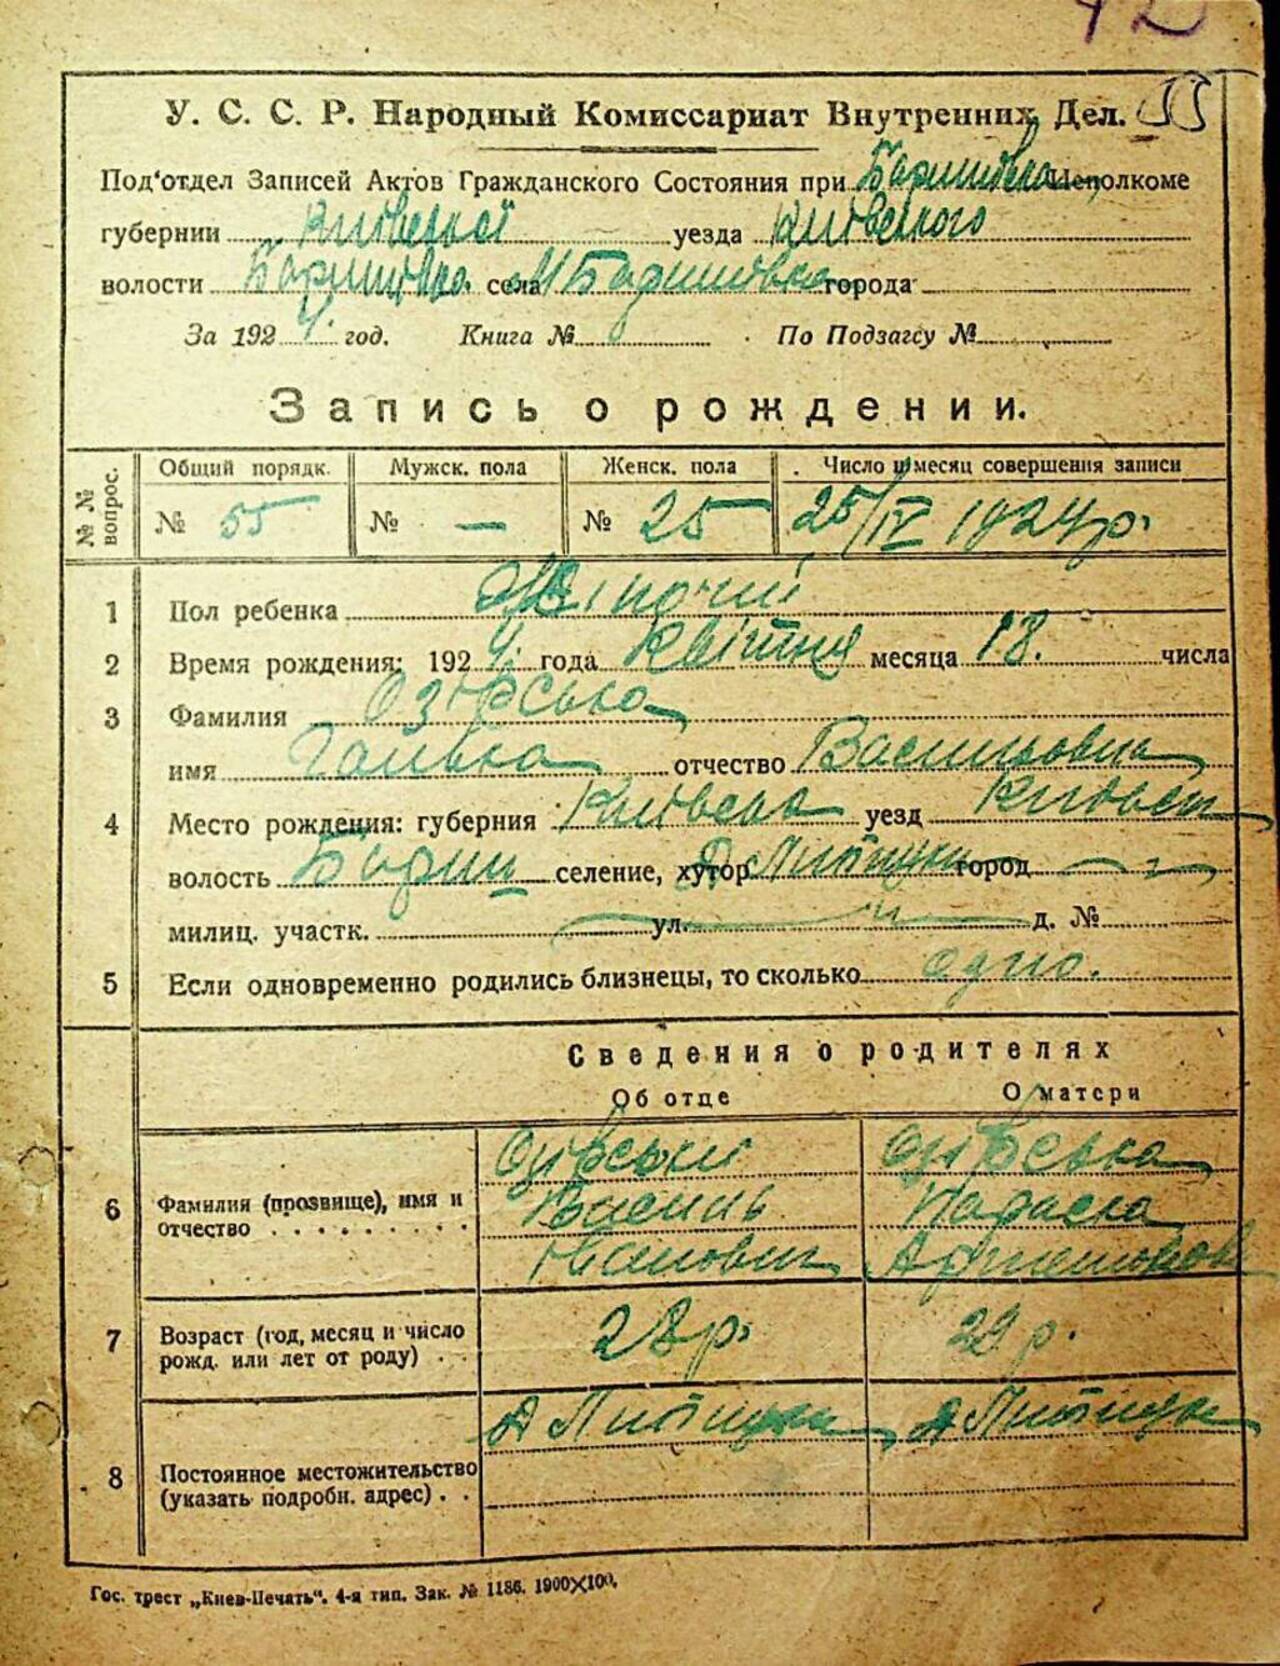 42
У. С. С. Р. Народный Комиссариат Внутренних Дел. 55
Под'отдел Записей Актов Гражданского Состояния при Баришівськ. Исполкоме
губернии Київської уезда Київського
волости Баришівка села М Баришівка города
За 1924. год. Книга № По Подзагсу №
Запись о рождении.
№ № вопрос. Общий порядк. Мужск. пола Женск. пола Число и месяц совершения записи
№ 55 № — № 25 25/IV 1924 р.
1 Пол ребенка Жіночий
2 Время рождения: 1924. года Квітня месяца 18. числа
3 Фамилия Озірська
имя Галька отчество Васильовна
4 Место рождения: губерния Київська уезд Київськ
волость Бариш селение, хутор город —
милиц. участк. — ул. — д. №
5 Если одновременно родились близнецы, то сколько одно.
Сведения о родителях
Об отце О матери
6 Фамилия (прозвище), имя и отчество
Озірський Озірська
Василь Параска
Іванович
7 Возраст (год, месяц и число рожд. или лет от роду)
28 р. 29 р.
8 Постоянное местожительство (указать подробн. адрес)
Гос. трест „Киев-Печать“. 4-я тип. Зак. № 1186. 1900×100.